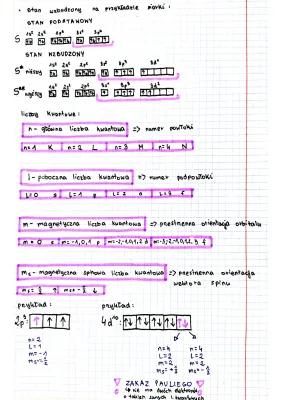 • stan wzbudzony na przykładzie siarki:
STAN PODSTAWOWY
1s² 2s² 2p⁶ 3s² 3p⁴
S
STAN WZBUDZONY
1s² 2s² 2p⁶ 3s² 3p³ 3d¹
S* niższy
1s² 2s² 2p⁶ 3s¹ 3p³ 3d²
S** wyższy
liczby kwantowe:
n - główna liczba kwantowa => numer powłoki
n=1 K n=2 L n=3 M n=4 N
l - poboczna liczba kwantowa => numer podpowłoki
L=0 s L=1 p L=2 d L=3 f
m - magnetyczna liczba kwantowa => przestrzenna orientacja orbitalu
m=0 s m=-1,0,1 p m=-2,-1,0,1,2 d m=-3,-2,-1,0,1,2,3 f
ms - magnetyczna spinowa liczba kwantowa => przestrzenna orientacja
wektora spinu
ms=½ ↑ ms=-½ ↓
przykład: przykład:
2p³ ↑ ↑ ↑ 4d¹⁰ ↑↓ ↑↓ ↑↓ ↑↓ ↑↓
n=2 n=4 n=4
L=1 L=2 L=2
m=-1 m=2 m=2
ms=½ ms=+½ ms=-½
ZAKAZ PAULIEGO
nie ma dwóch elektronów
o takich samych l. kwantowych